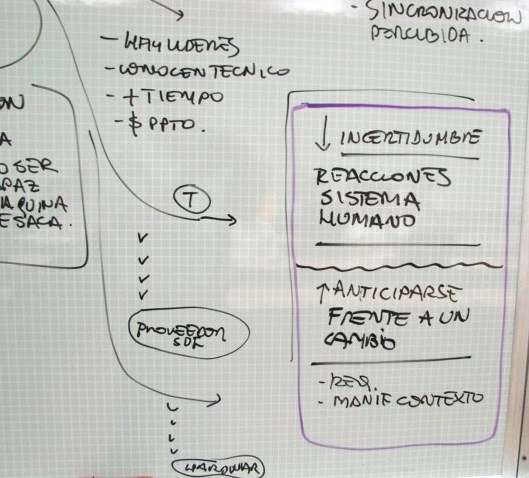 - SINCRONIZACION
PERCIBIDA.
- HAY LIDERES
- CONOCEN TECNICO
- + TIEMPO
- $ PPTO.
ON
A
O SER
PAZ
AQUINA
E SACA.
T
PROVEEDOR
↓ INCERTIDUMBRE
REACCIONES
SISTEMA
HUMANO
↑ ANTICIPARSE
FRENTE A UN
CAMBIO
- REQ.
- MANIF CONTEXTO